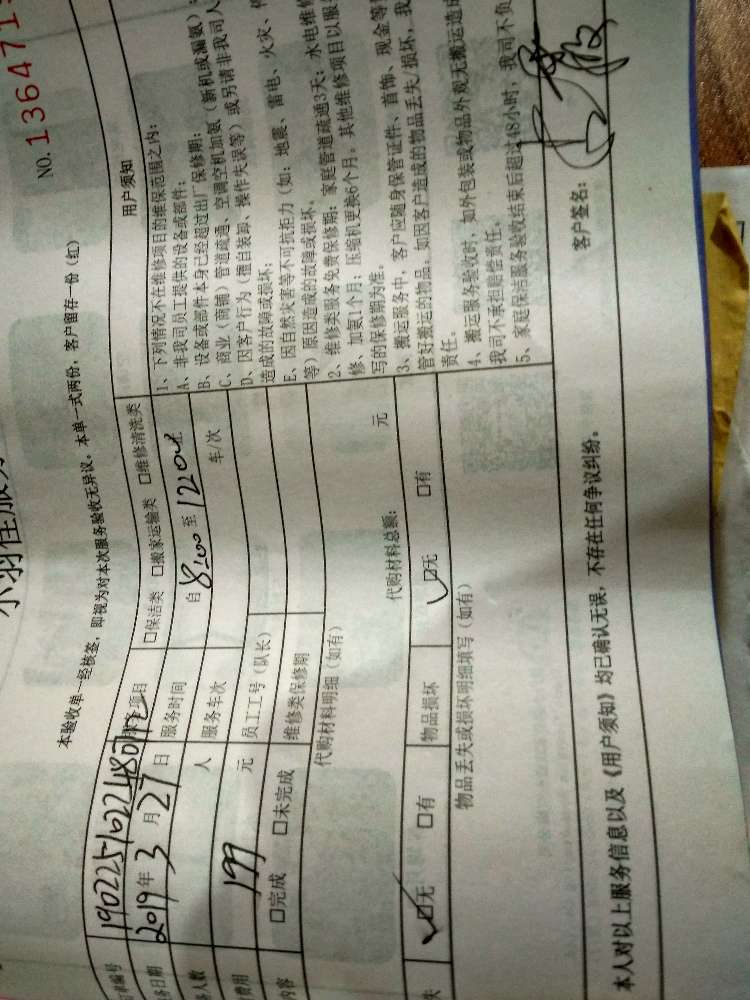 NO. 136471
本验收单一经核签，即视为对本次服务验收无异议。本单一式两份，客户留存一份（红）
订单编号 19022516224480
项目 □保洁类 □搬家运输类 □维修清洗类
务日期 2019年3月27日 服务时间 自8:00至12:00
务人数 人 服务车次 车/次
费用 199 元 员工工号（队长）
内容 □完成 □未完成 维修类保修期
代购材料明细（如有）
代购材料总额： 元
失 ☑无 □有 物品损坏 ☑无 □有
物品丢失或损坏明细填写（如有）
用户须知
1、下列情况不在维修项目的维保范围之内：
A、非我司员工提供的设备或部件；
B、设备或部件本身已经超过出厂保修期；
C、商业（商铺）管道疏通、空调空机加氨（新机或漏氨）；
D、因客户行为（擅自装卸、操作失误等）或另请非我司人
造成的故障或损坏；
E、因自然灾害等不可抗拒力（如：地震、雷电、火灾、
等）原因造成的故障或损坏。
2、维修类服务免费保修期：家庭管道疏通3天；水电维修
修、加氨1个月；压缩机更换6个月。其他维修项目以服
写的保修期为准。
3、搬运服务中，客户应随身保管证件、首饰、现金等
管好搬运的物品。如因客户造成的物品丢失/损坏，我
责任。
4、搬运服务验收时，如外包装或物品外观无搬运造成
我司不承担赔偿责任。
5、家庭保洁服务验收结束后超过48小时，我司不负
本人对以上服务信息以及《用户须知》均已确认无误，不存在任何争议纠纷。
客户签名：